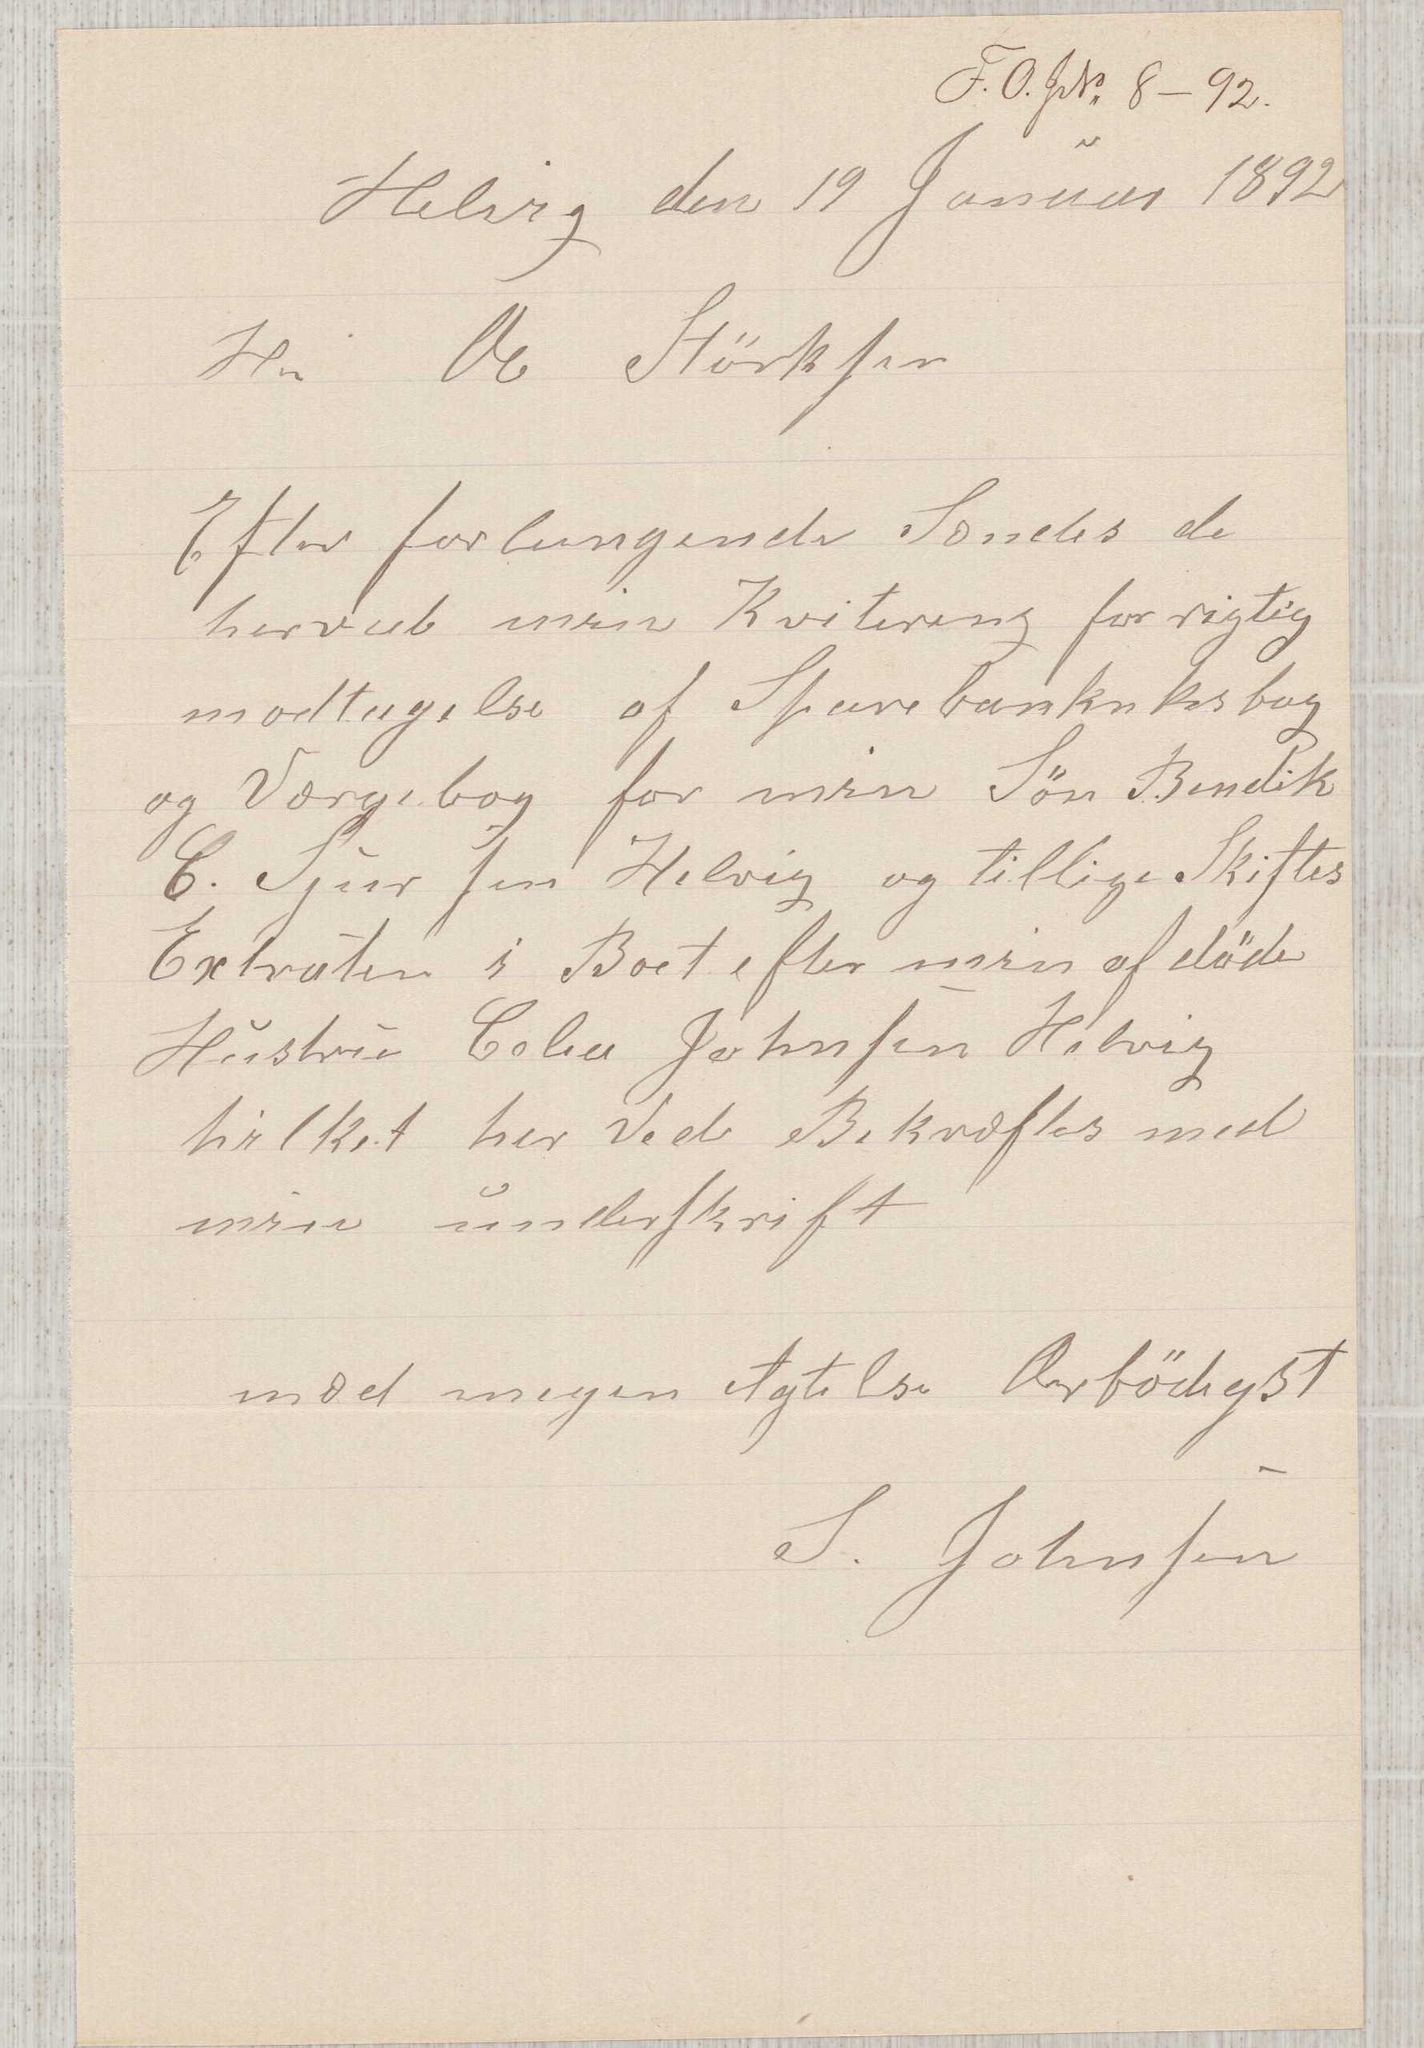 F. O. J№ 8–92.
Helvig den 19 Januar 1892
Hr. Störksen
Efter forlangende Sendes de
herved min Kvitering for rigtig
modtagelse af Sparebanknksbog
og Værgebog for min Sön Bendik
C. Sjursen Helvig og tillige Skiftes
Extraten i Boet efter min afdöde
Hustru Johnsen Helvig
hvilket her Ved Bekræftes med
min underskrift
med megen Agtelse Ærbödigst
S. Johnsen